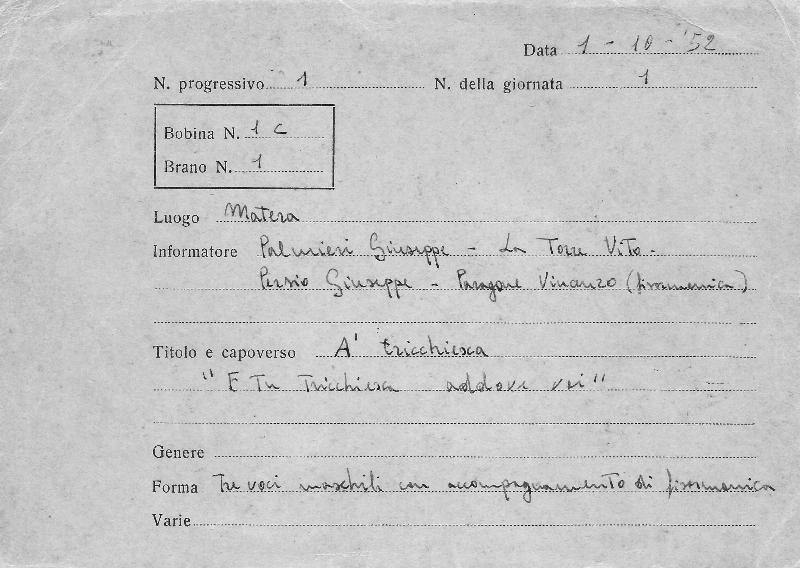 Data 1 - 10 - '52
N. progressivo 1 N. della giornata 1
Bobina N. 1 C
Brano N. 1
Luogo Matera
Informatore Palmieri Giuseppe - La Torre Vito -
Persio Giuseppe - Paragone Vinanzo (fisarmonica)
Titolo e capoverso A' tricchiesca
"E tu tricchiesca addove vai"
Genere
Forma tre voci maschili con accompagnamento di fisarmonica
Varie